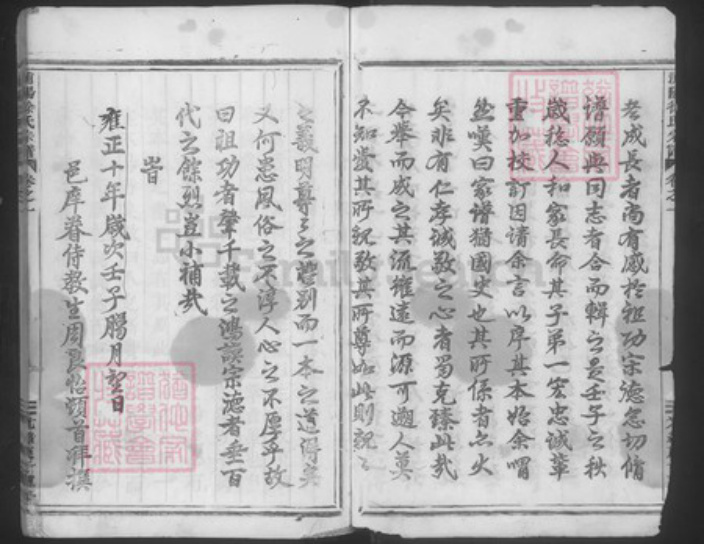 老成長者尚有感於祖功宗德急切脩
譜願與同志者合而輯之是壬子之秋
歲稔人和家長命其子弟一宏忠誠輩
重加校訂因請余言以序其本始余喟
然嘆曰家譜猶國史也其所係者亦大
矣非有仁孝誠敬之心者曷克臻此哉
今舉而成之其流雖遠而源可遡人莫
不知愛其所親敬其所尊如此則親々
之義明尊々之禮別而一本之道得矣
又何患風俗之不淳人心之不厚乎故
曰祖功者肇千載之鴻謨宗德者垂百
代之餘烈豈小補哉
旹
雍正十年歲次壬子臈月望日
邑庠眷侍教生周良怡頓首拜撰